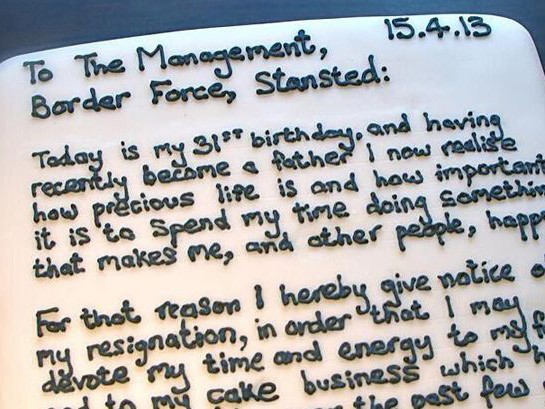 15.4.13
To The Management,
Border Force, Stansted:
Today is my 31ST birthday, and having
recently become a father I now realise
how precious life is and how important
it is to spend my time doing somethin
that makes me, and other people, happ
For that reason I hereby give notice o
my resignation, in order that I may
devote my time and energy to my f
to my cake business which h
the past few